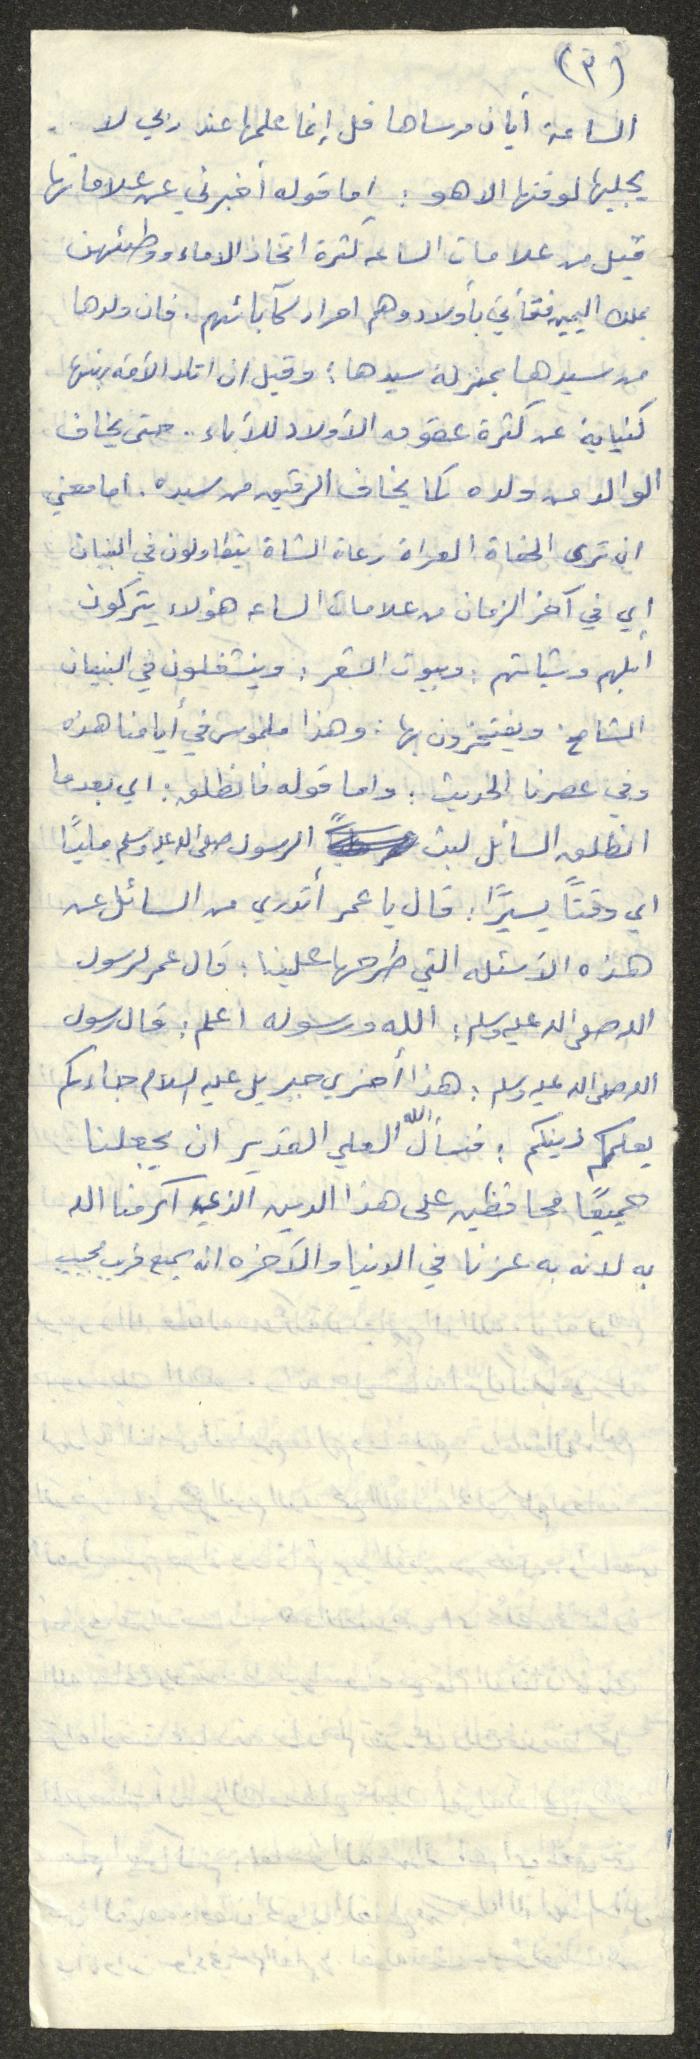 (٣)
الساعة أيان مرساها قل إنما علمها عند ربي لا
يجليها لوقتها الا هو : اما قوله أخبرني عن علاماتها
قيل من علامات الساعه كثرة اتخاذ الاماء ووطئهن
بملك اليمين فتأتي بأولاد وهم احرار كآبائهم . فان ولدها
من سيدها بمنزلة سيدها : وقيل ان اتلد الأمة ربتها
كنياية عن كثرة عقوق الأولاد للأباء . حتى يخاف
الوالد من ولده كما يخاف الرقيق من سيده . اما معنى
ان ترى الحفاة العراة رعاة الشاة يتطاولون في البنيان
أي في آخر الزمان من علامات الساعه هؤلاء يتركون
أبلهم وشياتهم : وبيوت الشعر : وينشغلون في البنيان
الشامخ . ويفتخرون بها : وهذا ملموس في أيامنا هذه
وفي عصرنا الحديث : واما قوله فانطلق : اي بعدما
انطلق السائل لبث الرسول صلى الله عليه وسلم مليًا
اي وقتاً يسيرًا : قال يا عمر أتدري من السائل عن
هذه الأسئله التي طرحها علينا : قال عمر لرسول
الله صلى الله عليه وسلم : الله ورسوله اعلم : قال رسول
الله صلى الله عليه وسلم : هذا أخي جبريل عليه السلام جاءكم
يعلمكم دينكم : فنسأل الله العلي القدير ان يجعلنا
جميعًا محافظين على هذا الدين الذي اكرمنا الله
به لانه به عزنا في الدنيا والآخره انه سميع قريب مجيب